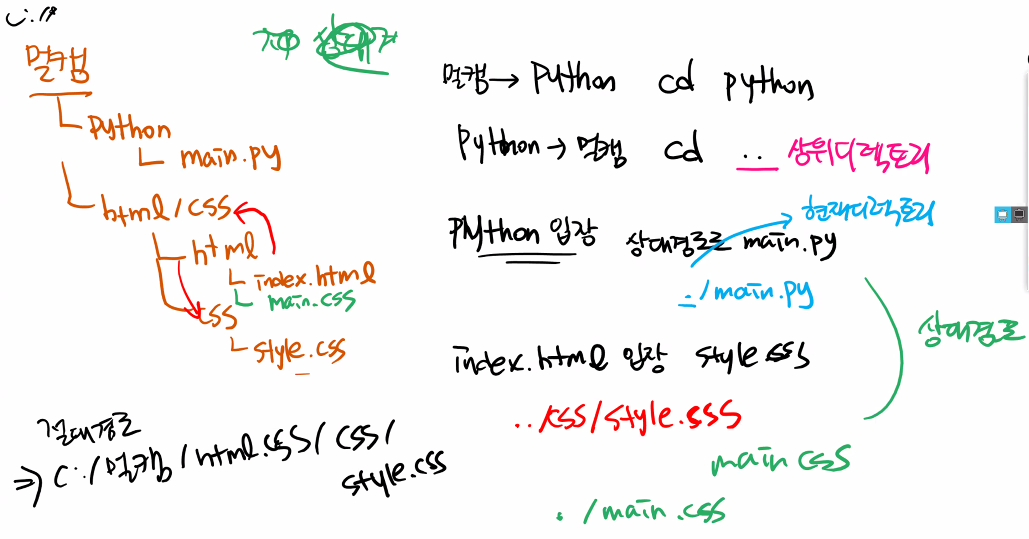 C:/
멀캠
Python
main.py
html/css
html
index.html
main.css
css
style.css
절대경로
⇒ C:/멀캠/html.css/css/
style.css
멀캠→Python cd python
Python→멀캠 cd .. 상위디렉토리
현재디렉토리
Python 입장 상대경로로 main.py
./main.py
상대경로
index.html 입장 style.css
../css/style.css
main css
./main.css